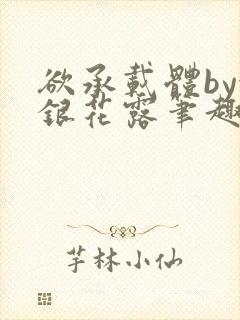 欲承載體by
銀花露筆趣
芋林小仙